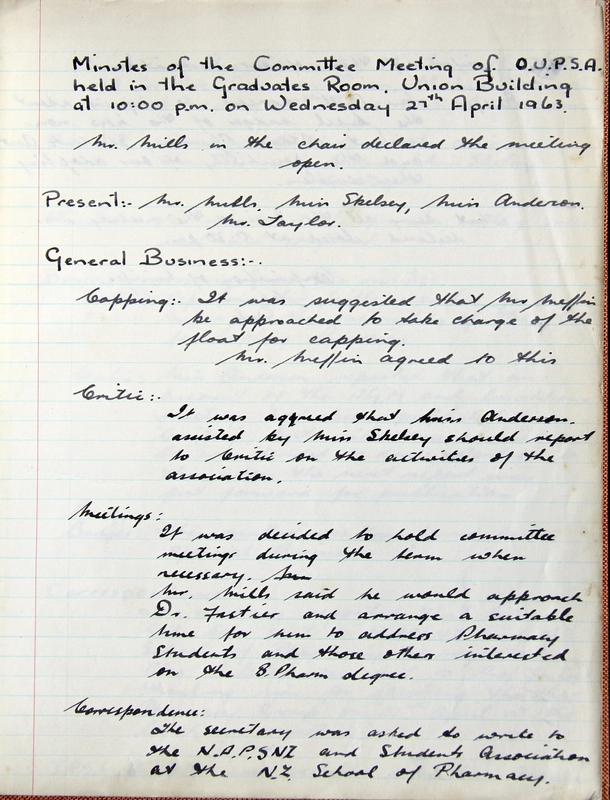 Minutes of the Committee Meeting of O.U.P.S.A.
held in the Graduates Room, Union Building
at 10:00 p.m. on Wednesday 27th April 1963.
Mr. Mills in the chair declared the meeting
open.
Present:- Mr. Mills, Miss Skelsey, Miss Anderson.
Mr. Taylor.
General Business:-.
Capping:. It was suggested that Mr Meffin
be approached to take charge of the
float for capping.
Mr. Meffin agreed to this
Critic:-.
It was aggreed that Miss Anderson.
assisted by Miss Skelsey should report
to Critic on the activities of the
association.
Meetings:
It was decided to hold committee
meetings during the term when
necessary.
Mr. Mills said he would approach
Dr. Fastier and arrange a suitable
time for him to address Pharmacy
Students and those others interested
on the B.Pharm degree.
Correspondence:
The secretary was asked to write to
the N.A.P.SNZ and Students Association
at the N.Z. School of Pharmacy.